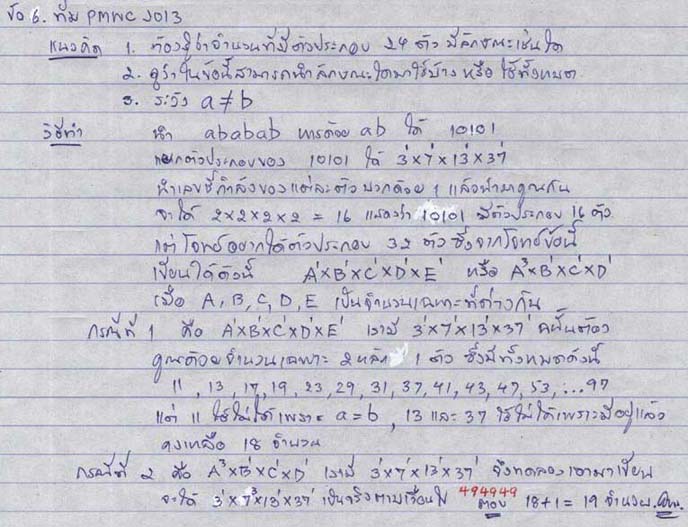 ข้อ 6. ทีม PMWC 2013
แนวคิด 1. ต้องรู้ว่าจำนวนที่มีตัวประกอบ 24 ตัว มีลักษณะเช่นใด
2. ดูว่าในข้อนี้สามารถนำลักษณะใดมาใช้บ้าง หรือ ใช้ทั้งหมด
3. ระวัง a≠b
วิธีทำ นำ ababab หารด้วย ab ได้ 10101
แยกตัวประกอบของ 10101 ได้ 3¹×7¹×13¹×37¹
นำเลขชี้กำลังของแต่ละตัว บวกด้วย 1 แล้วนำมาคูณกัน
จะได้ 2×2×2×2 = 16 แสดงว่า 10101 มีตัวประกอบ 16 ตัว
แต่ โจทย์อยากได้ตัวประกอบ 32 ตัว ซึ่งจากโจทย์ข้อนี้
เขียนได้ดังนี้ A¹×B¹×C¹×D¹×E¹ หรือ A³×B¹×C¹×D¹
เมื่อ A, B, C, D, E เป็นจำนวนเฉพาะที่ต่างกัน
กรณีที่ 1 คือ A¹×B¹×C¹×D¹×E¹ เรามี 3¹×7¹×13¹×37¹ ฉะนั้นต้อง
คูณด้วยจำนวนเฉพาะ 2 หลัก 1 ตัว ซึ่งมีทั้งหมดดังนี้
11, 13, 17, 19, 23, 29, 31, 37, 41, 43, 47, 53, ...97
แต่ 11 ใช้ไม่ได้เพราะ a=b, 13 และ 37 ใช้ไม่ได้เพราะมีอยู่แล้ว
คงเหลือ 18 จำนวน
กรณีที่ 2 คือ A³×B¹×C¹×D¹ เรามี 3¹×7¹×13¹×37¹ จึงทดลองเอามาเขียน
จะได้ 3¹×7³×13¹×37¹ เป็นจริงตามเงื่อนไข 494949 ตอบ 18+1 = 19 จำนวน